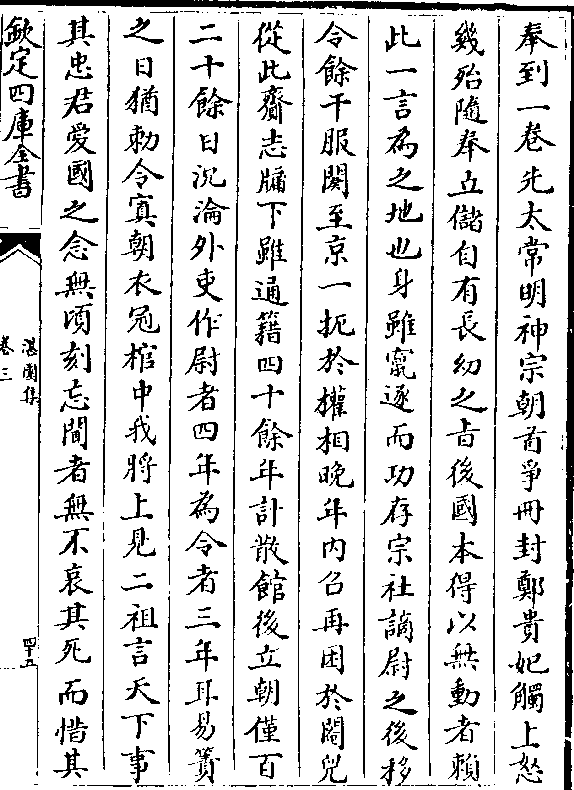 奉到一卷先太常明神宗朝首爭冊封鄭貴妃觸上怒
幾殆隨奉立儲自有長幼之㫖後國本得以無動者賴
此一言為之地也身雖竄逐而功存宗社謫尉之後移
令餘干服闋至京一扼於權相晚年内召再困於閹兒
從此齎志牖下雖通籍四十餘年計散館後立朝僅百
二十餘日沉淪外吏作尉者四年為令者三年耳易簀
之日猶勅令寘朝衣冠棺中我將上見二祖言天下事
其忠君愛國之念無頃刻忘聞者無不哀其死而惜其
欽定四庫全書
湛園集
卷三
四十五